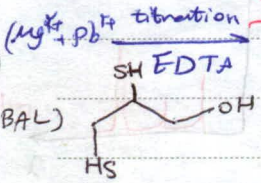 (Mg²⁺+Pb²⁺ titration
EDTA
SH
BAL)
OH
HS